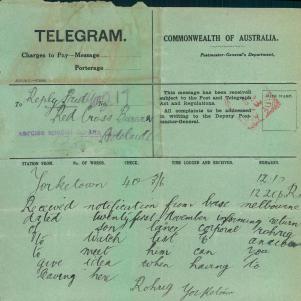 TELEGRAM.
Charges to Pay—Message
Porterage
COMMONWEALTH OF AUSTRALIA.
Postmaster-General's Department.
This message has been received
subject to the Post and Telegraph
Act and Regulations.
All complaints to be addressed
in writing to the Deputy Post-
master-General.
To Reply Paid 17
Red Cross Bureau
Adelaide
STATION FROM. No. OF WORDS. CHECK. TIME LODGED AND RECEIVED. REMARKS.
Yorketown 40 3/6 12.17
Received notification from base melbourne
dated twentyfirst November informing return
of son lance corporal Rohrig
to meet him can you
give idea when having to
leaving here
Rohrig Yorketown